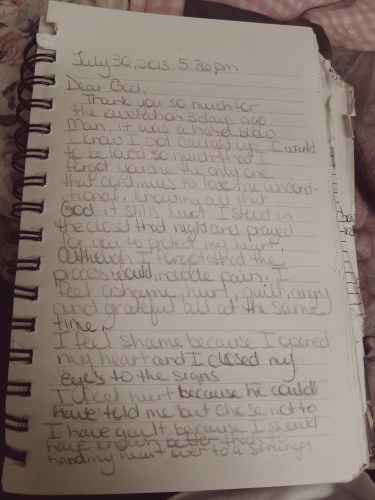 July 30, 2013 5:36pm
Dear God,
Thank you so much for
the revelation 3 days ago.
Man, it was a hard blow.
I know I got caught up. I want
to be loved so much that I
forget you are the only one
that continues to love me uncond-
tional. Knowing all that
God it stills hurt. I stood in
the closet that night and prayed
for you to protect my heart.
Although I forgot that the
process would include pain. I
feel ashame, hurt, guilt, angry
and grateful all at the same
time.
I feel shame because I opened
my heart and I closed my
eyes to the signs
I feel hurt because he could
have told me but chose not to
I have guilt because I should
have known better than to
hand my heart over to a stranger